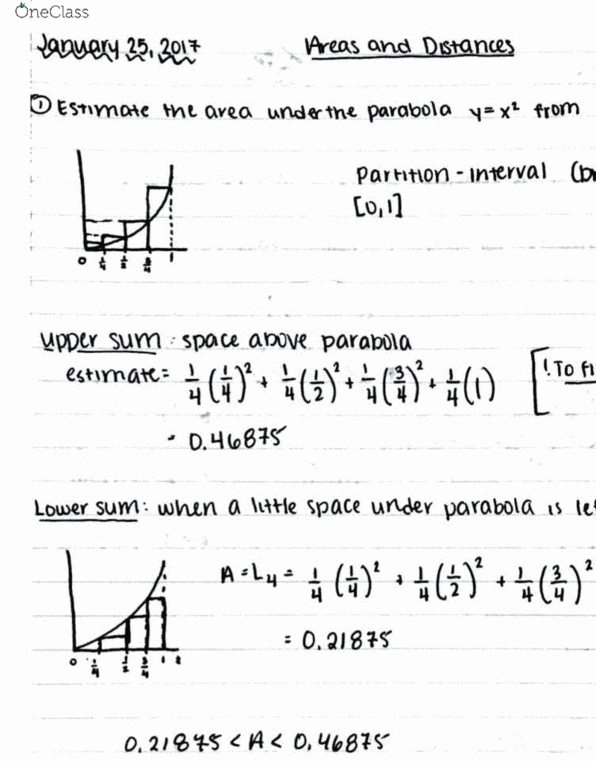 OneClass
January 25, 2017 Areas and Distances
① Estimate the area under the parabola y=x² from
Partition - interval
[0,1]
0 1/4 1/2 3/4 1
upper sum : space above parabola
estimate = 1/4 (1/4)² + 1/4 (1/2)² + 1/4 (3/4)² + 1/4 (1) [ ! To
= 0.46875
Lower sum : when a little space under parabola is
A = L4 = 1/4 (1/4)² + 1/4 (1/2)² + 1/4 (3/4)²
= 0.21875
0 1/4 1/2 3/4 1
0.21875 < A < 0.46875